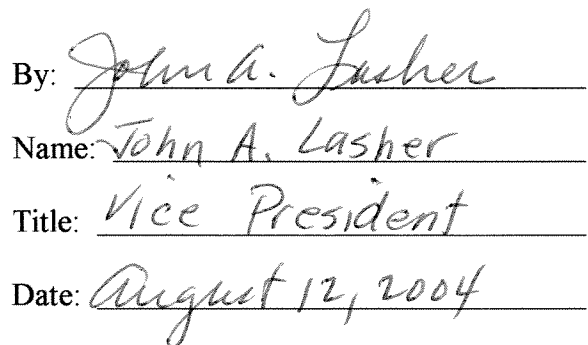 By: John A. Lasher
Name: John A. Lasher
Title: Vice President
Date: August 12, 2004